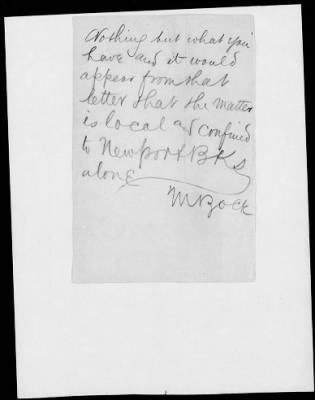 Nothing but what you
have and it would
appear from that
letter that the matter
is local and confined
to Newport BKs
alone